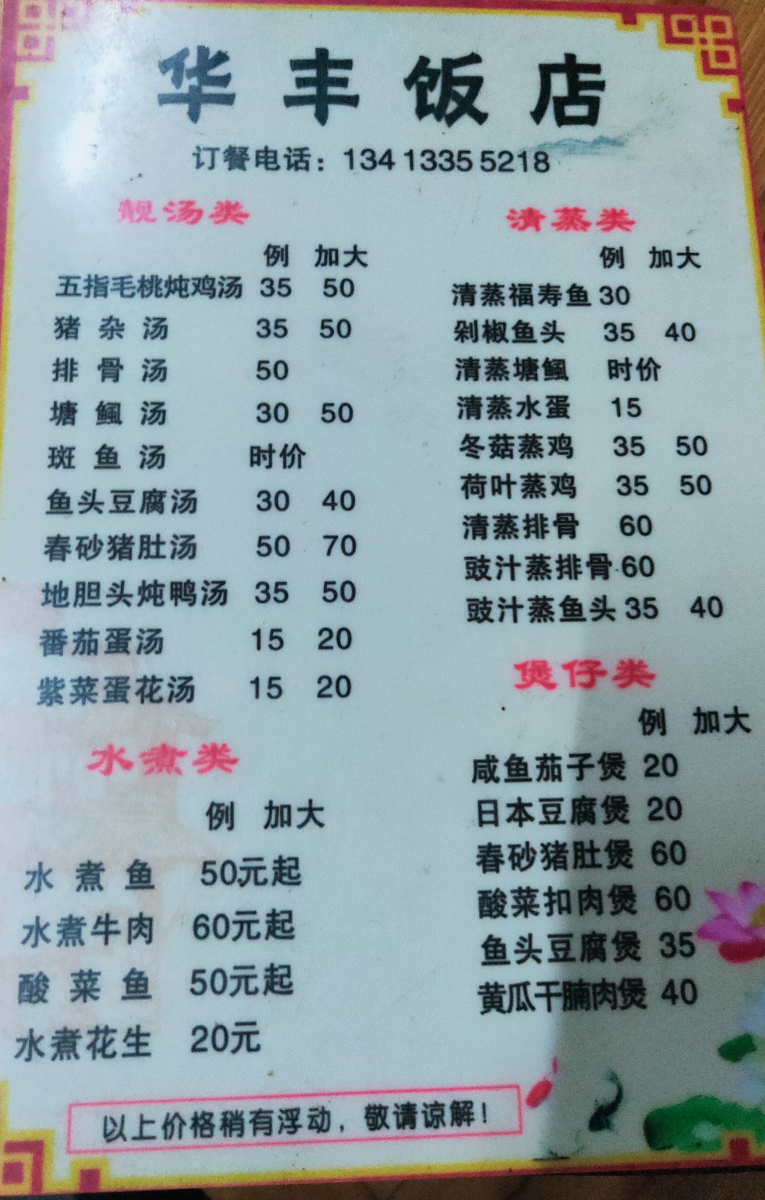 华丰饭店
订餐电话：134 1335 5218
靓汤类
例 加大
五指毛桃炖鸡汤 35 50
猪杂汤 35 50
排骨汤 50
塘鲺汤 30 50
斑鱼汤 时价
鱼头豆腐汤 30 40
春砂猪肚汤 50 70
地胆头炖鸭汤 35 50
番茄蛋汤 15 20
紫菜蛋花汤 15 20
水煮类
例 加大
水煮鱼 50元起
水煮牛肉 60元起
酸菜鱼 50元起
水煮花生 20元
清蒸类
例 加大
清蒸福寿鱼 30
剁椒鱼头 35 40
清蒸塘鲺 时价
清蒸水蛋 15
冬菇蒸鸡 35 50
荷叶蒸鸡 35 50
清蒸排骨 60
豉汁蒸排骨 60
豉汁蒸鱼头 35 40
煲仔类
例 加大
咸鱼茄子煲 20
日本豆腐煲 20
春砂猪肚煲 60
酸菜扣肉煲 60
鱼头豆腐煲 35
黄瓜干腩肉煲 40
以上价格稍有浮动，敬请谅解！